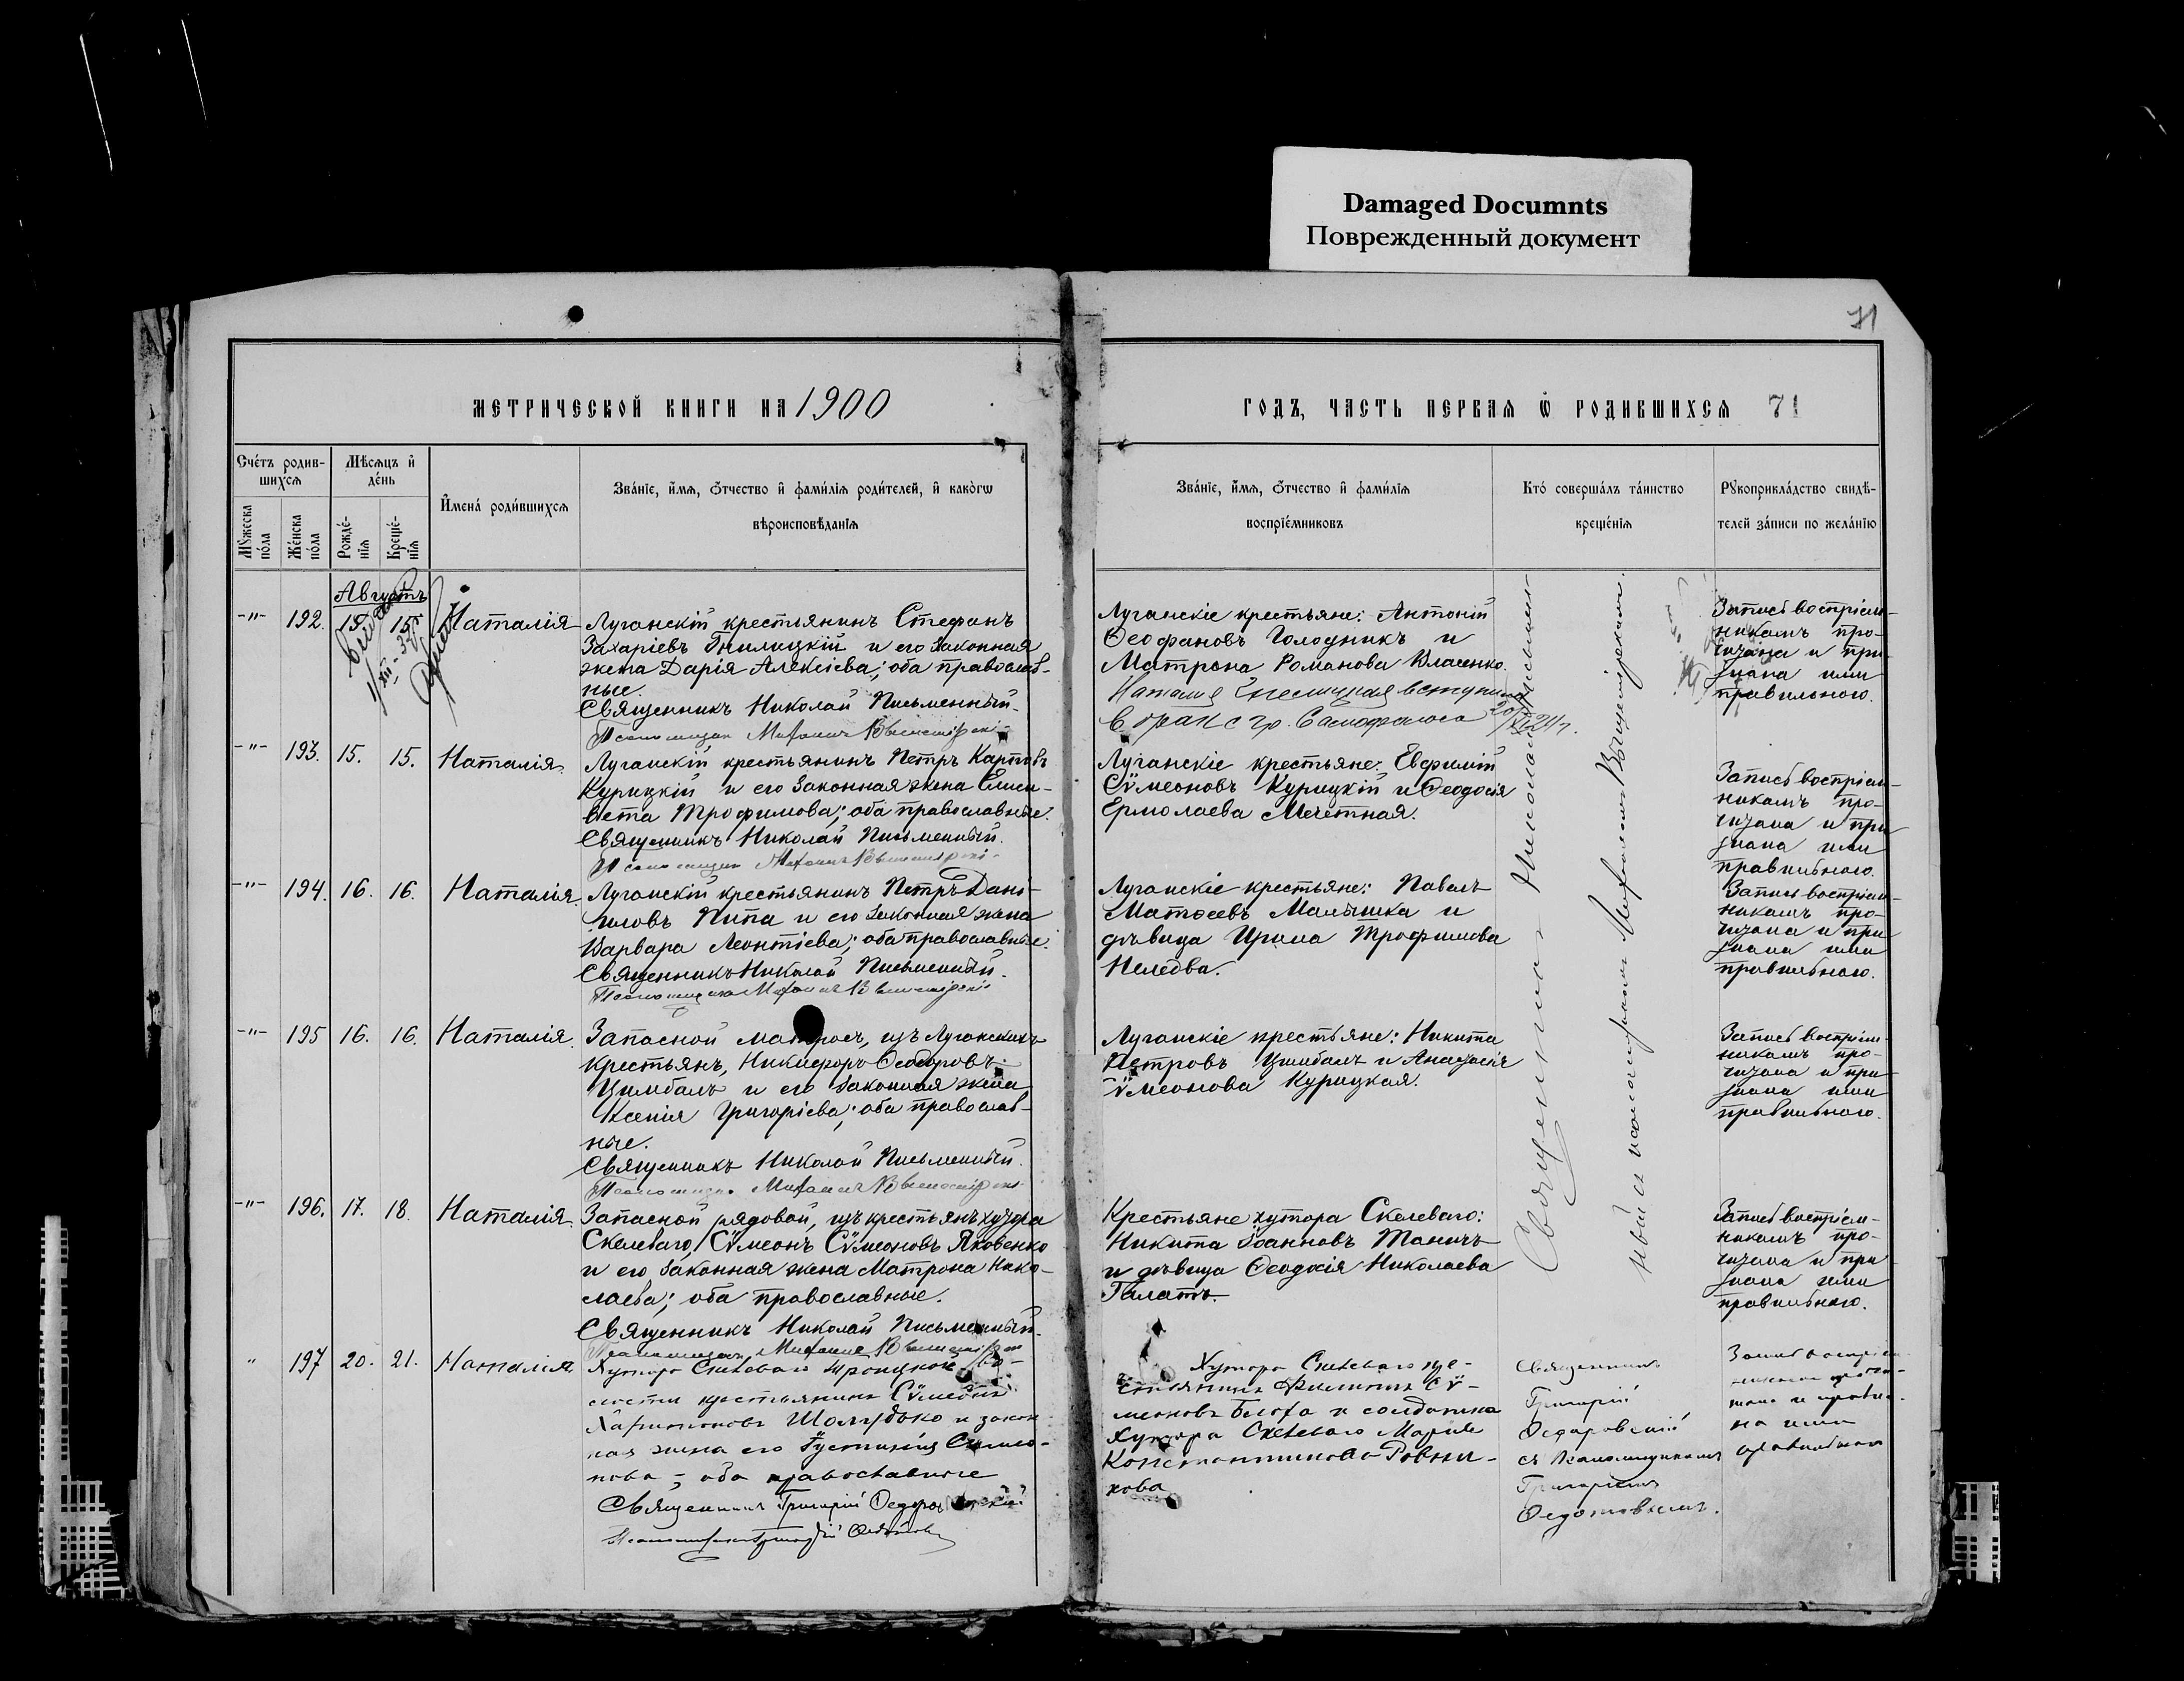 Damaged Documnts
Поврежденный документ
71
МЕТРИЧЕСКОЙ КНИГИ НА 1900
ГОДЪ, ЧАСТЬ ПЕРВАЯ Ѡ РОДИВШИХСЯ 71
Счетъ родив-
шихся
Мѣсяцъ и
день
Мужеска
пола
Женска
пола
Рожде-
нія
Креще-
нія
Имена родившихся
Званіе, имя, отчество и фамилія родителей, и какогѡ
вѣроисповѣданія
Званіе, имя, отчество и фамилія
воспріемниковъ
Кто совершалъ таинство
крещенія
Рукоприкладство свидѣ-
телей записи по желанію
Августъ
-"- 192. 15. 15. Наталія
Луганскій крестьянинъ Стефанъ
Захаріевъ Гнилицкій и его законная
жена Дарія Алексіева; оба православ-
ные.
Священникъ Николай Письменный.
Псаломщикъ Михаилъ
Луганскіе крестьяне: Антоній
Ѳеофановъ Голодникъ и
Матрона Романова Власенко.
Наталия вступила
в брак с гр.
Запись воспріем-
никамъ про-
читана и при-
знана ими
правильною.
-"- 193. 15. 15. Наталія.
Луганскій крестьянинъ Петръ Карповъ
Курицкій и его законная жена Елиса-
вета Трофимова; оба православные.
Священникъ Николай Письменный.
Псаломщикъ Михаилъ
Луганскіе крестьяне: Евфимій
Сѵмеоновъ Курицкій и Ѳеодосія
Ермолаева Мечетная.
Запись воспріем-
никамъ про-
читана и при
знана ими
правильною.
-"- 194. 16. 16. Наталія.
Луганскій крестьянинъ Петръ Дані-
иловъ Пипа и его законная жена
Варвара Леонтіева; оба православные.
Священникъ Николай Письменный.
Псаломщикъ Михаилъ
Луганскіе крестьяне: Павелъ
Матѳеевъ Малышка и
дѣвица Ирина Трофимова
Запись воспріем-
никамъ про-
читана и при
знана ими
правильною.
-"- 195 16. 16. Наталія.
Запасной матросъ, изъ Луганскихъ
крестьянъ, Никифоръ Ѳеодоровъ
Цимбалъ и его законная жена
Ксенія Григоріева; оба православ-
ные.
Священникъ Николай Письменный.
Псаломщикъ Михаилъ
Луганскіе крестьяне: Никита
Петровъ Цимбалъ и Анастасія
Сѵмеонова Курицкая.
Запись воспріем-
никамъ про-
читана и при
знана ими
правильною.
-"- 196. 17. 18. Наталія.
Запасной рядовой, изъ крестьянъ хутора
Скелеваго, Сѵмеонъ Сѵмеоновъ Яковенко
и его законная жена Матрона Нико-
лаева; оба православные.
Священникъ Николай Письменный.
Псаломщикъ Михаилъ
Крестьяне хутора Скелеваго:
Никита Іоанновъ Таничъ
и дѣвица Ѳеодосія Николаева
Галатъ.
Запись воспріем-
никамъ про-
читана и при
знана ими
правильною.
Священникъ Николай Письмен-
ный и псаломщикъ Михаилъ
" 197 20. 21. Наталія
Хутора Скелеваго Троицкой во-
лости крестьянинъ Сѵмеонъ
Харитоновъ Шолудько и закон
ная жена его Іустинія Симео-
нова; оба православные
Священникъ Григорій Ѳедоровскій
Псаломщикъ Григорій Ѳедотовъ
Хутора Скелеваго кре-
стьянинъ Филиппъ Сѵ-
меоновъ Блоха и солдатка
хутора Скелеваго Марія
Константинова Ровни-
кова
Священникъ
Григорій
Ѳедоровскій
съ псаломщикомъ
Григоріемъ
Ѳедотовымъ.